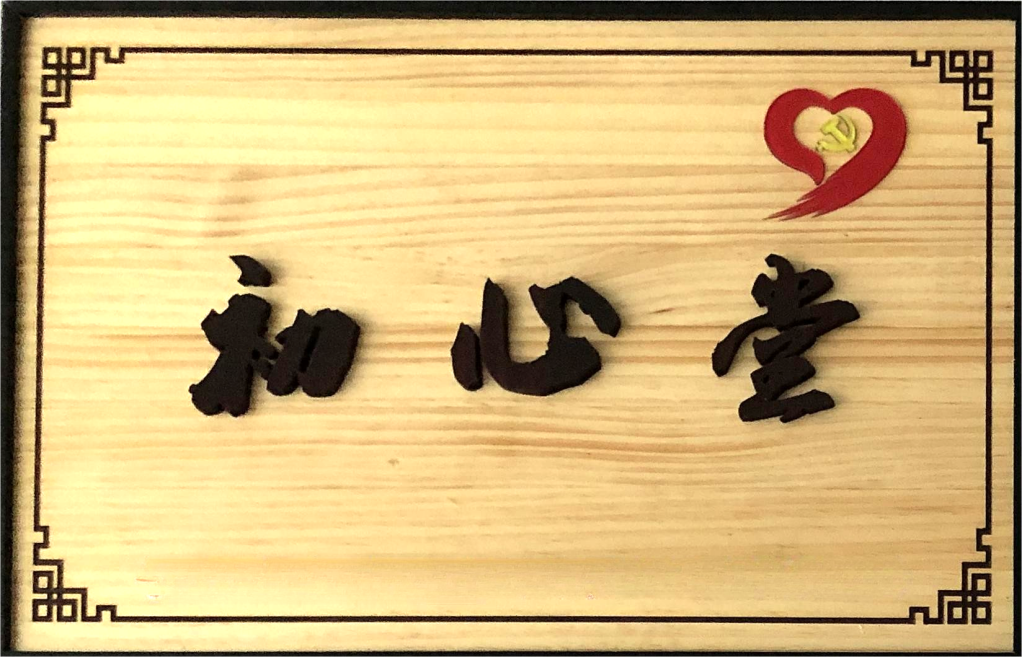 初心堂